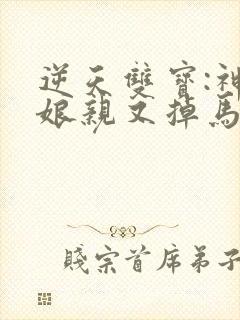 逆天雙寶:神
娘親又掉馬
賤宗首席弟子